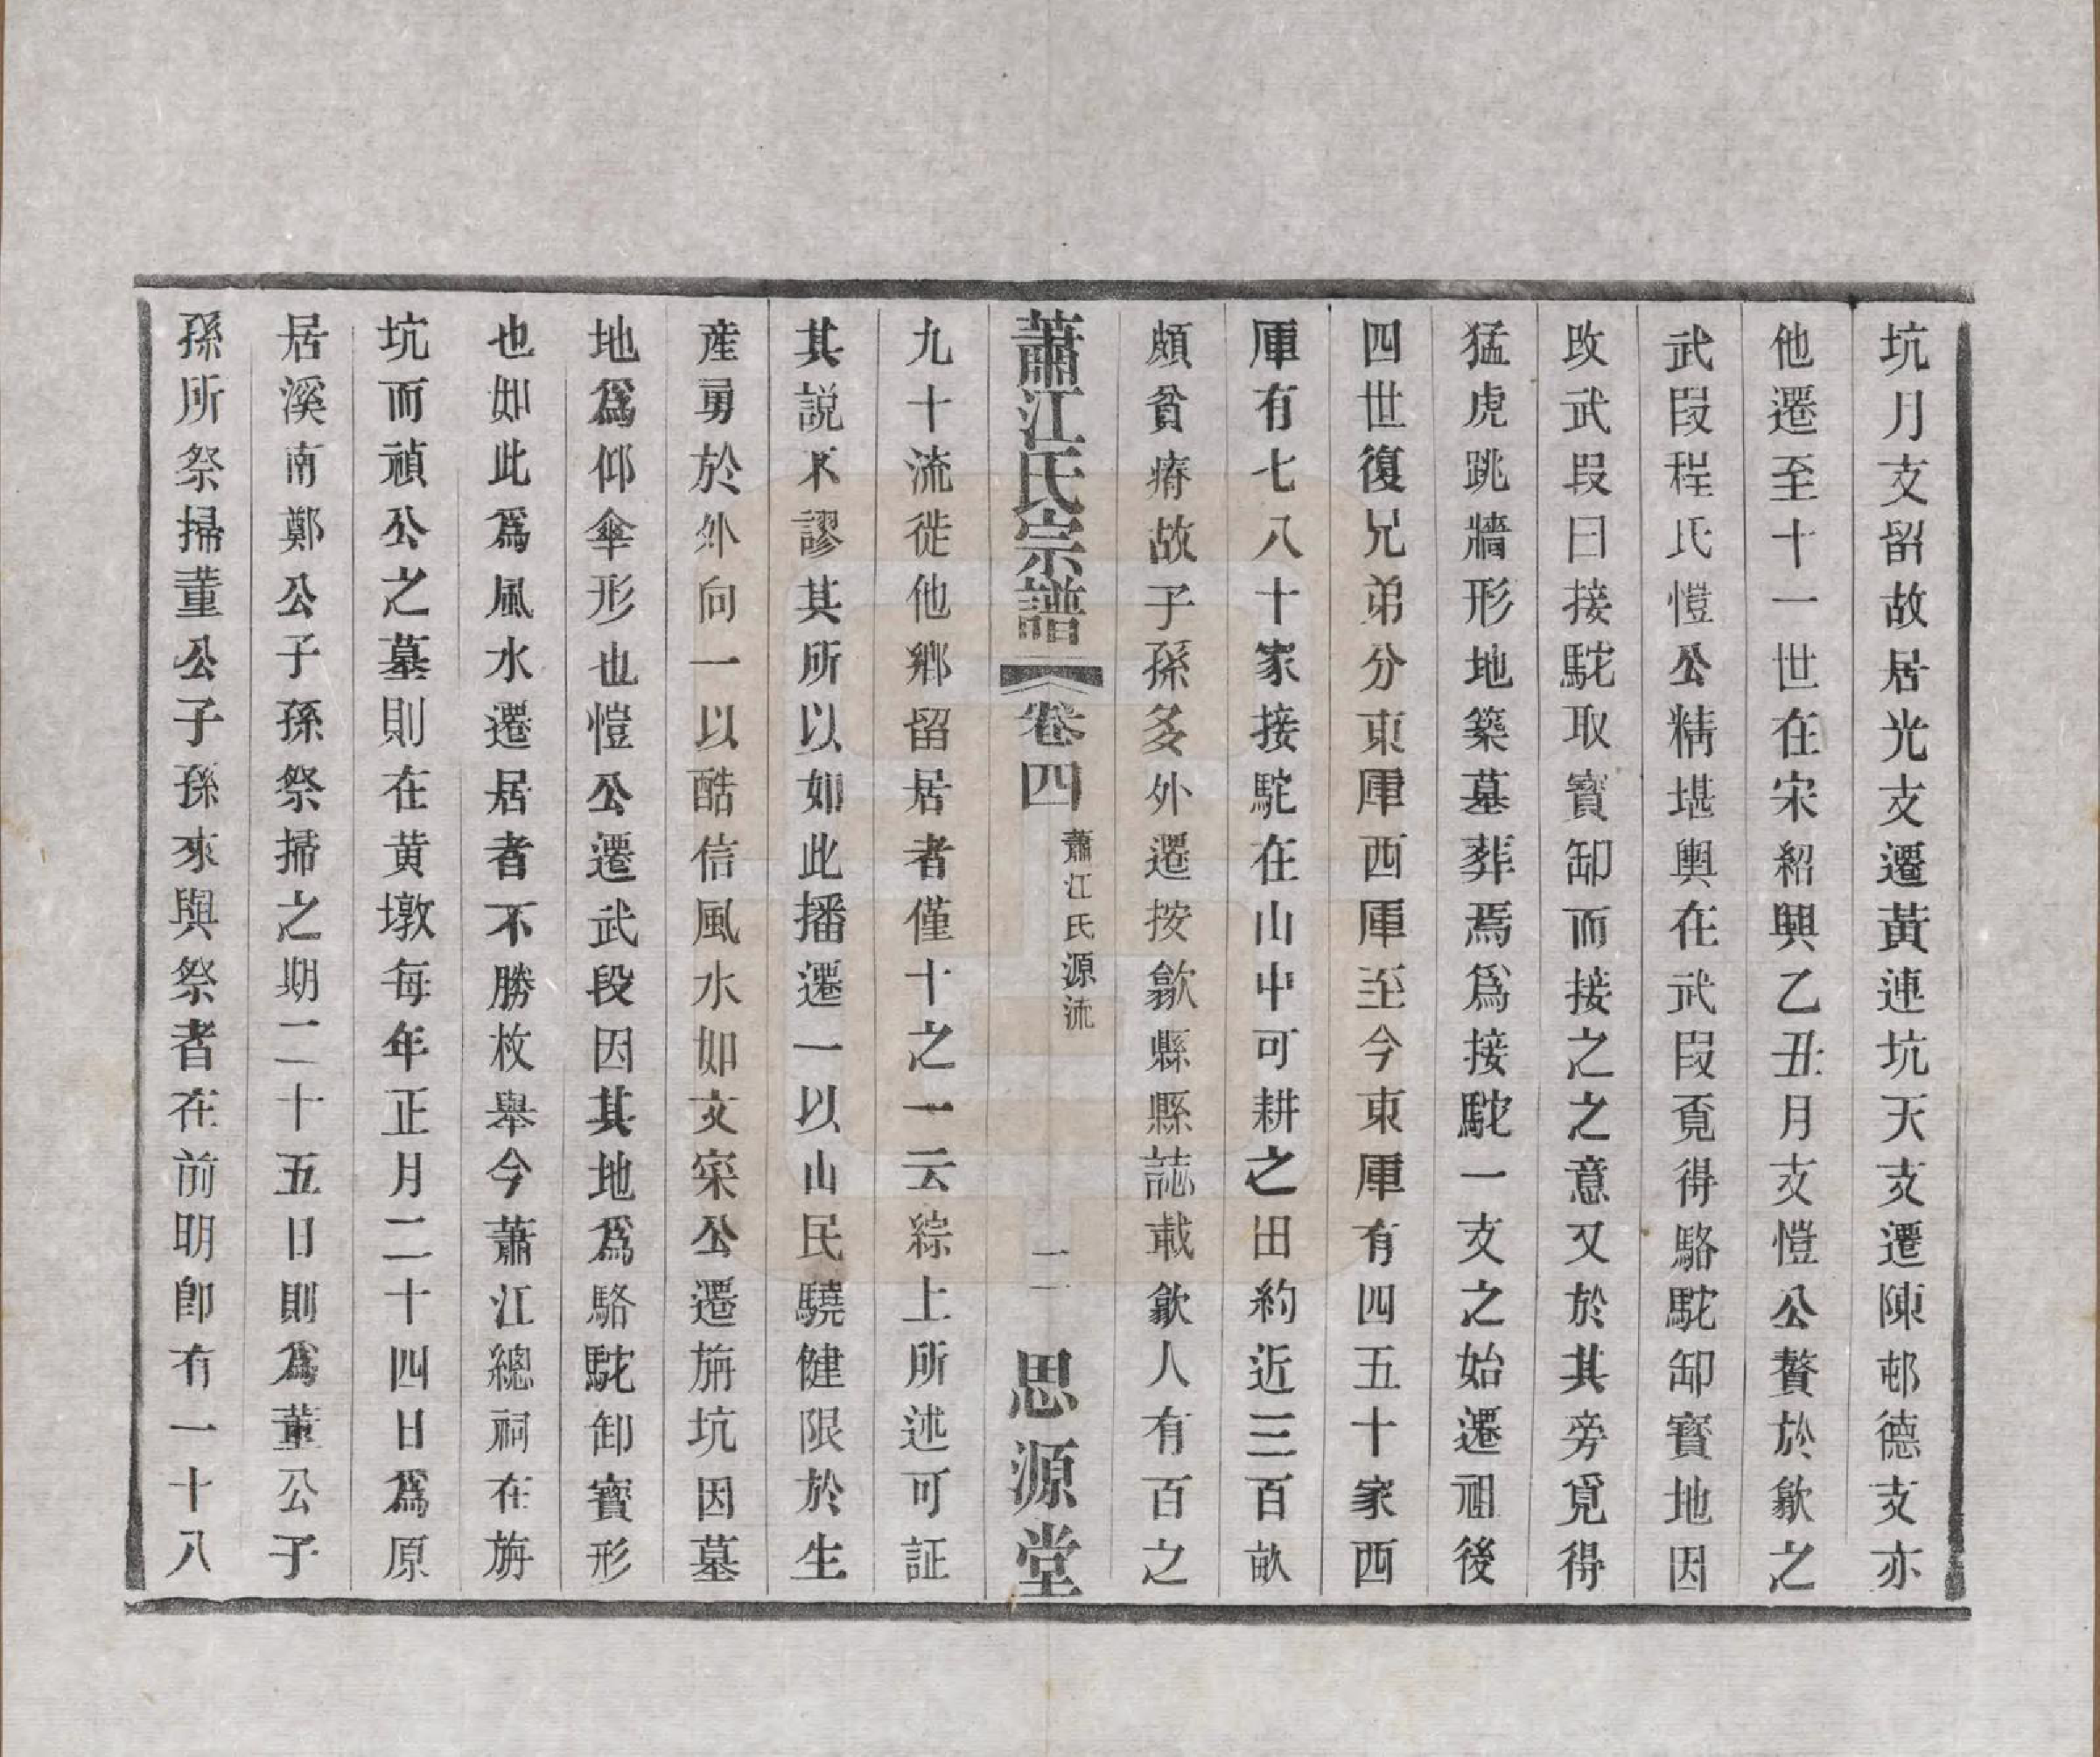 坑月支留故居光支遷黃連坑天支遷陳邨德支亦
他遷至十一世在宋紹興乙丑月支愷公贅於歙之
武段程氏愷公精堪輿在武段覓得駱駝卸寶地因
改武段曰接駝取寶卸而接之之意又於其旁覓得
猛虎跳牆形地築墓葬焉爲接駝一支之始遷祖後
四世復兄弟分東厙西厙至今東厙有四五十家西
厙有七八十家接駝在山中可耕之田約近三百畝
頗貧瘠故子孫多外遷按歙縣縣誌載歙人有百之
蕭江氏宗譜 卷四 蕭江氏源流 二 思源堂
九十流徙他鄉留居者僅十之一云綜上所述可証
其説不謬其所以如此播遷一以山民驍健限於生
産勇於外向一以酷信風水如文寀公遷旃坑因墓
地爲仰傘形也愷公遷武段因其地爲駱駝卸寶形
也如此爲風水遷居者不勝枚舉今蕭江總祠在旃
坑而禎公之墓則在黄墩每年正月二十四日爲原
居溪南鄭公子孫祭掃之期二十五日則爲董公子
孫所祭掃董公子孫來與祭者在前明卽有一十八